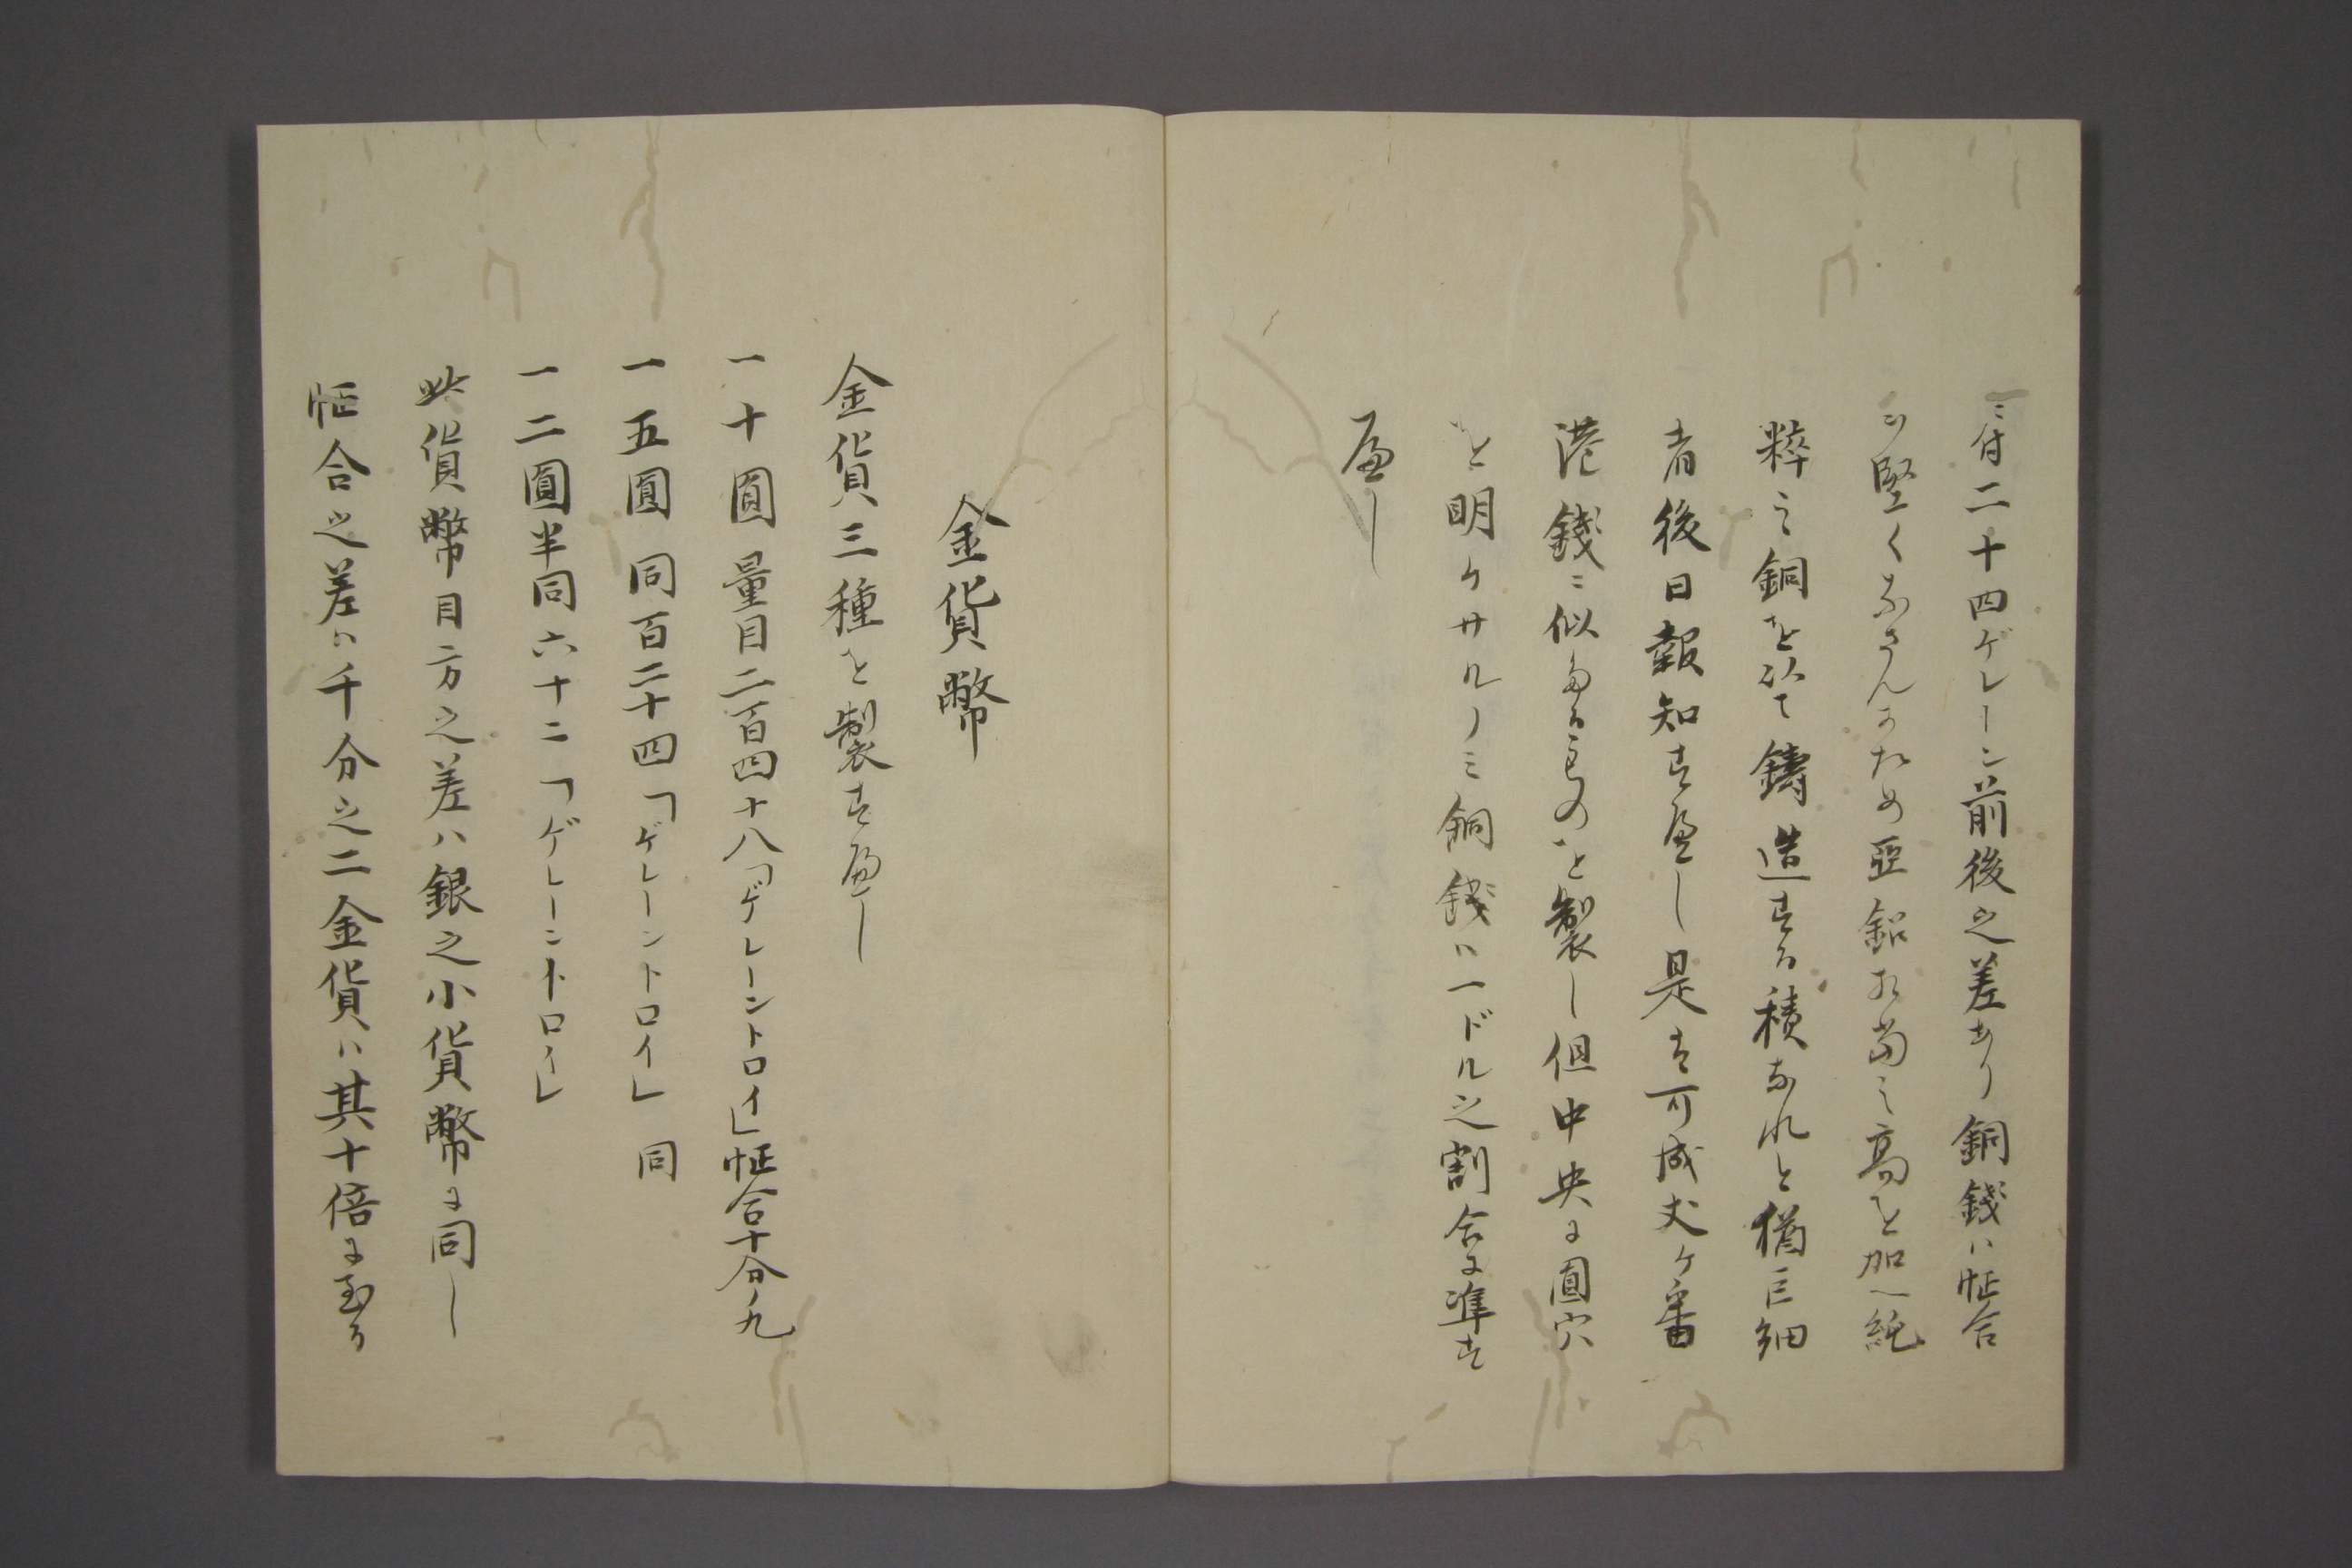 ニ付二十四ゲレーン前後之差あり銅錢ハ性合
を堅くなさんかため亞鉛相當之高を加へ純
粹之銅を以て鑄造する積なれと猶巨細
者後日報知す扁し是は可成丈ケ香
港錢ニ似たるものを製し但中央に圓穴
を明ケサルノミ銅錢ハ一ドル之割合に準す
扁し
金貨幣
金貨三種を製す扁し
一十圓 量目二百四十八「ゲレーントロイ」性合十分ノ九
一五圓 同百二十四「ゲレーントロイ」同
一二圓半同六十二「ゲレーントロイ」
此貨幣目方之差ハ銀之小貨幣に同し
性合之差ハ千分之二金貨ハ其十倍に至る